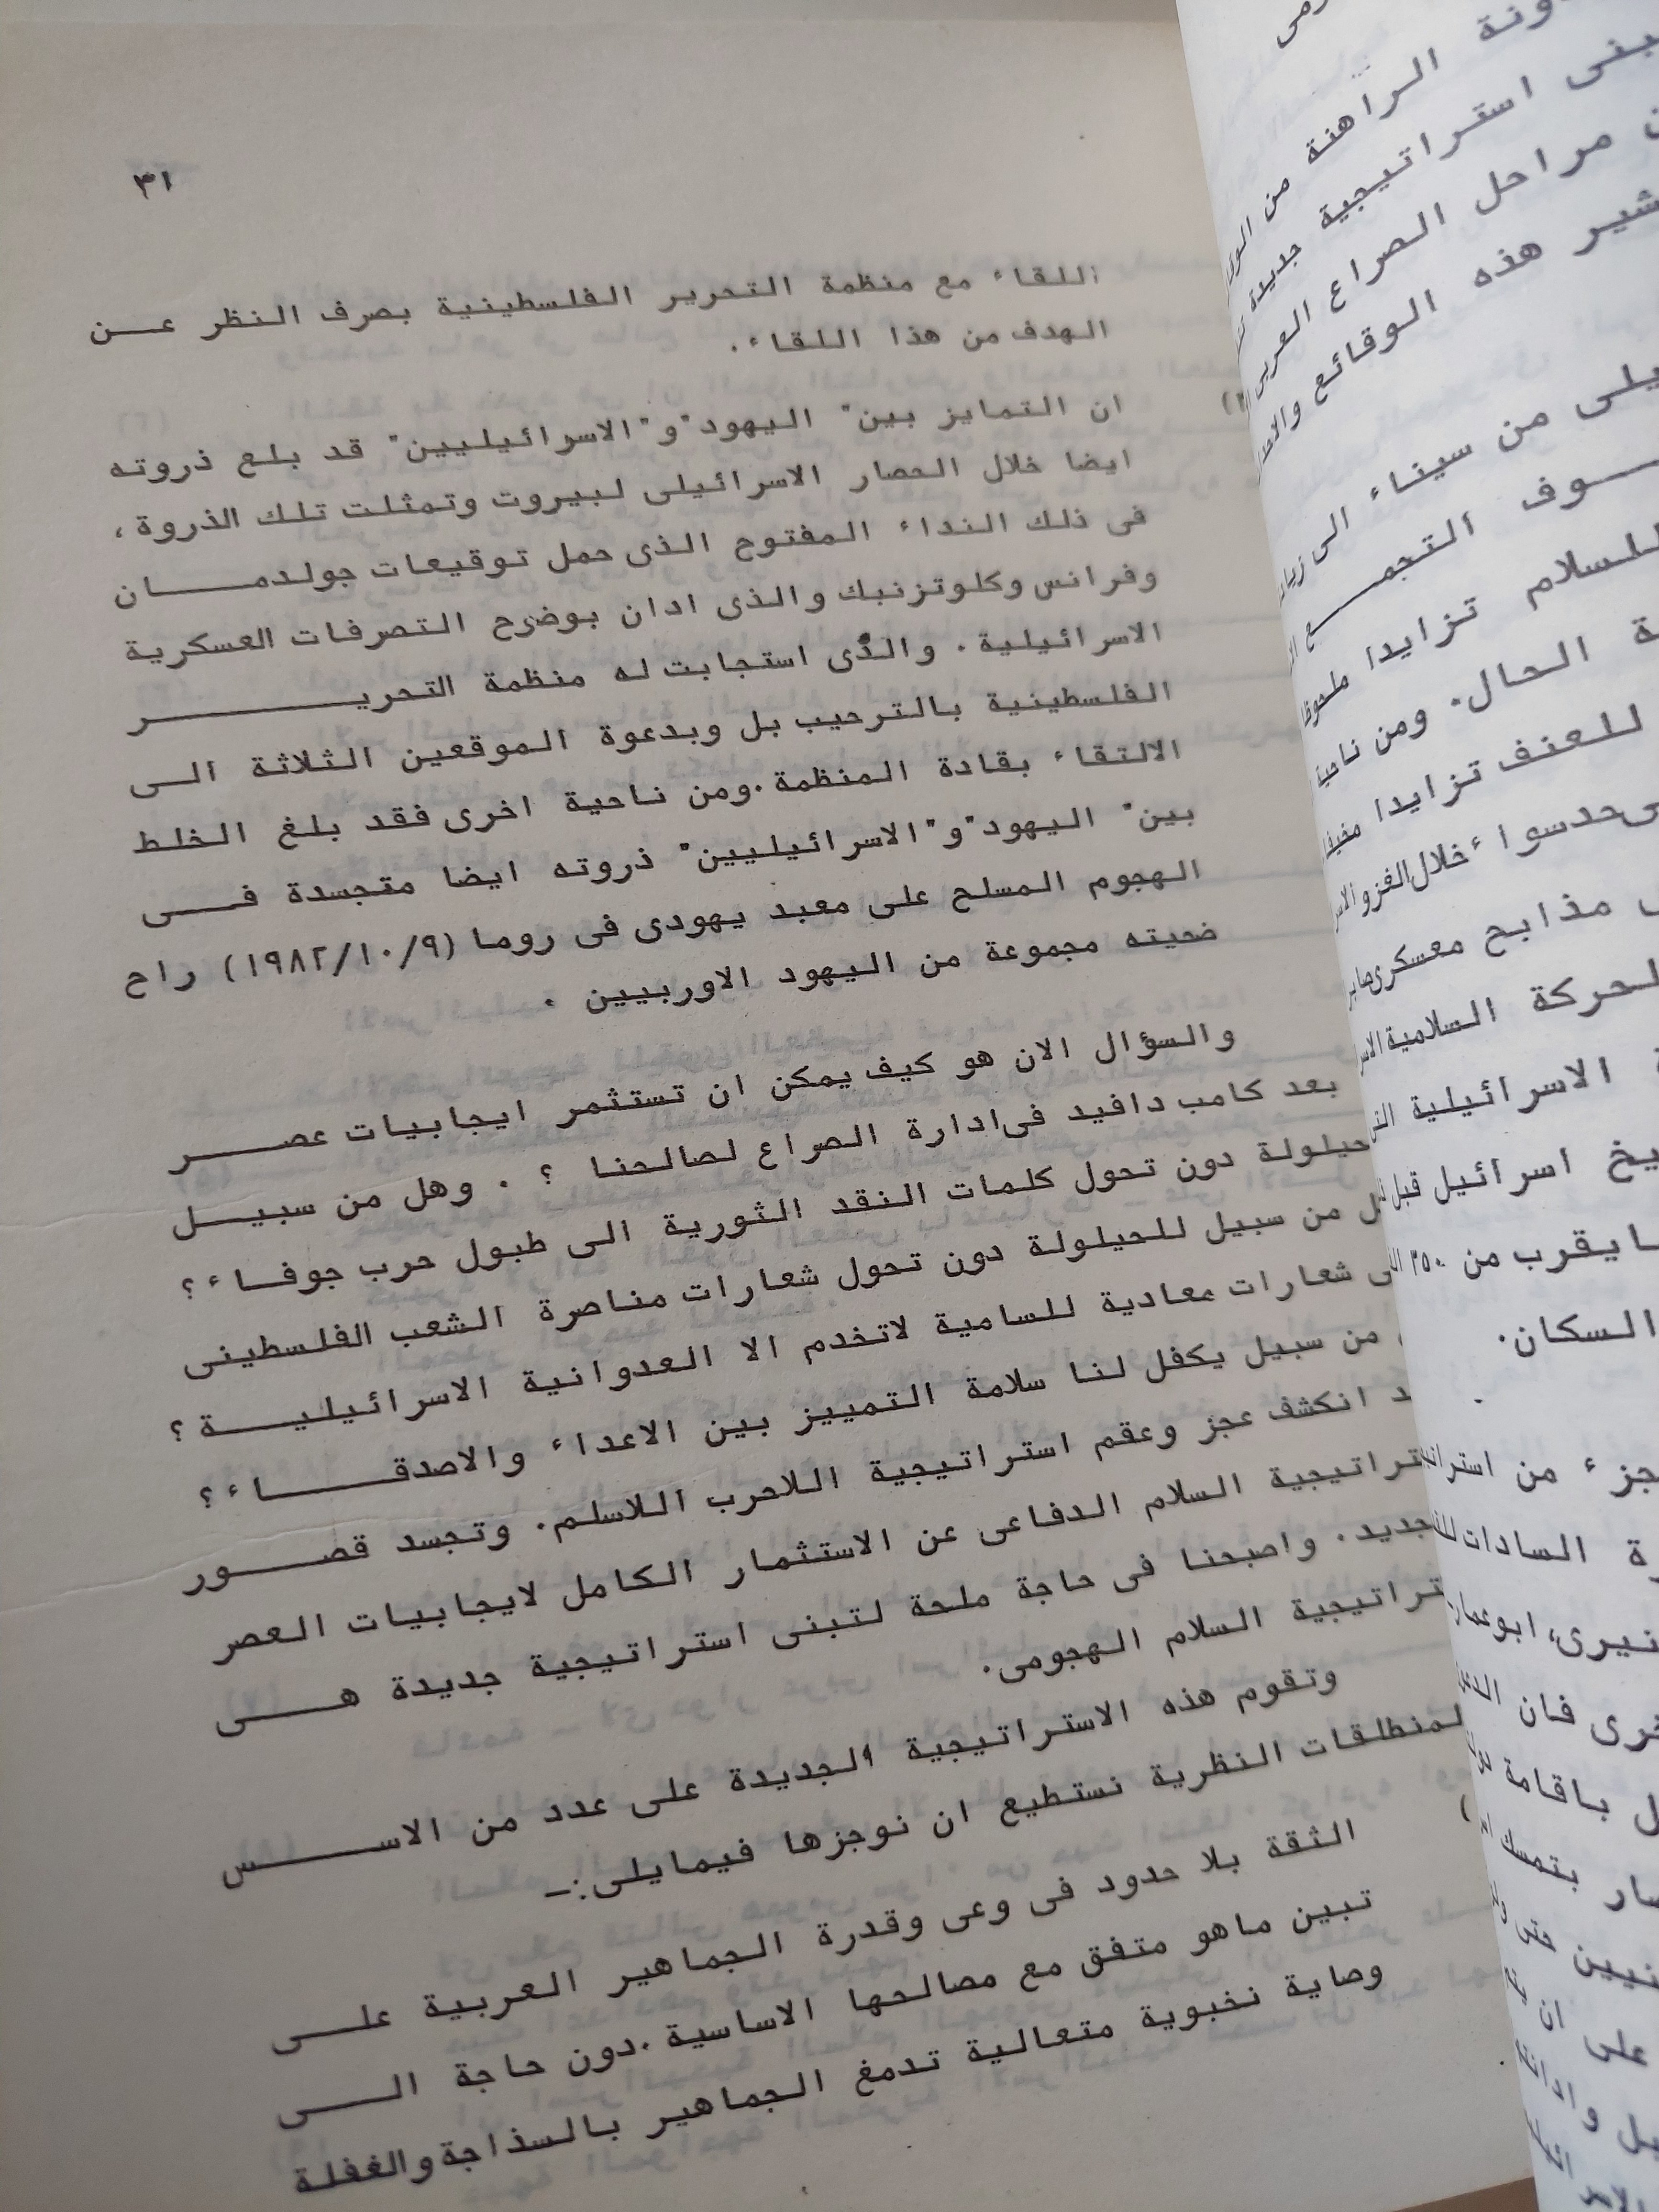 ٣١
اللقاء مع منظمة التحرير الفلسطينية بصرف النظر عن
الهدف من هذا اللقاء.
ان التمايز بين" اليهود"و"الاسرائيليين" قد بلغ ذروته
ايضا خلال الحصار الاسرائيلى لبيروت وتمثلت تلك الذروة ،
فى ذلك النداء المفتوح الذى حمل توقيعات جولدمان
وفرانس وكلوتزنبك والذى ادان بوضرح التصرفات العسكرية
الاسرائيلية . والذى استجابت له منظمة التحرير
الفلسطينية بالترحيب بل وبدعوة الموقعين الثلاثة الى
الالتقاء بقادة المنظمة .ومن ناحية اخرى فقد بلغ الخلط
بين" اليهود"و"الاسرائيليين" ذروته ايضا متجسدة فى
الهجوم المسلح على معبد يهودى فى روما (١٩٨٢/١٠/٩) راح
ضحيته مجموعة من اليهود الاوربيين .
والسؤال الان هو كيف يمكن ان تستثمر ايجابيات عصر
بعد كامب دافيد فى ادارة الصراع لصالحنا ؟ . وهل من سبيل
حيلولة دون تحول كلمات النقد الثورية الى طبول حرب جوفاء ؟
من سبيل للحيلولة دون تحول شعارات مناصرة الشعب الفلسطينى
شعارات معادية للسامية لاتخدم الا العدوانية الاسرائيلية ؟
من سبيل يكفل لنا سلامة التمييز بين الاعداء والاصدقاء ؟
انكشف عجز وعقم استراتيجية اللاحرب اللاسلم. وتجسد قصور
تراتيجية السلام الدفاعى عن الاستثمار الكامل لايجابيات العصر
جديد. واصبحنا فى حاجة ملحة لتبنى استراتيجية جديدة هى
تراتيجية السلام الهجومى.
وتقوم هذه الاستراتيجية الجديدة على عدد من الاسس
لمنطلقات النظرية نستطيع ان نوجزها فيمايلى:ـ
الثقة بلا حدود فى وعى وقدرة الجماهير العربية على
تبين ماهو متفق مع مصالحها الاساسية .دون حاجة الى
وصاية نخبوية متعالية تدمغ الجماهير بالسذاجة والغفلة
الراهنة من
استراتيجية جديدة
مراحل الصراع العربى
هذه الوقائع
من سيناء الى
التجمع
للسلام تزايدا ملحوظا
الحال. ومن ناحية
للعنف تزايدا مخيفا
سواء خلال الغزو
مذابح معسكرى
الحركة السلامية
الاسرائيلية
اسرائيل قبل
يقرب من ٣٥٠
السكان.
جزء من
السادات
فان
باقامة
بتمسك
حتى
على ان